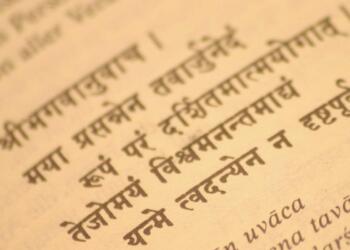 aller
श्रीभगवानुवाच ।
मया प्रसन्नेन तवार्जुनेदं
रूपं परं दर्शितमात्मयोगात् ।
तेजोमयं विश्वमनन्तमाद्यं
यन्मे त्वदन्येन न
ān uvāca
ena tavā